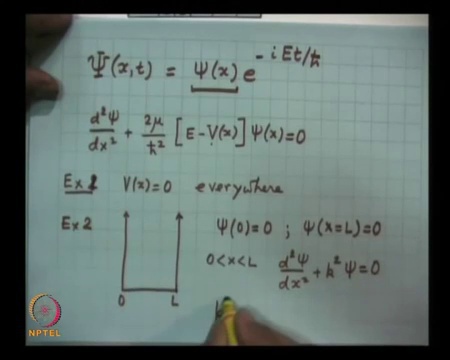 Ψ(x,t) = ψ(x) e^{-iEt/ħ}
d²ψ/dx² + 2μ/ħ² [E-V(x)] ψ(x)=0
Ex 1 V(x)=0 everywhere
Ex 2 ψ(0)=0 ; ψ(x=L)=0
0<x<L d²ψ/dx² + k²ψ=0
0 L
NPTEL